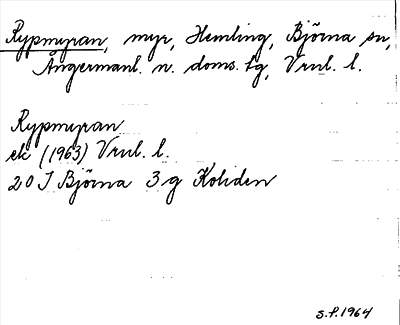 Rypmyran, myr, Hemling, Björna sn,
Ångermanl. n. doms. tg, Vrnl. l.
Rypmyran
ek (1963) Vrnl. l.
20 I Björna 3 g Koliden
S.P. 1964